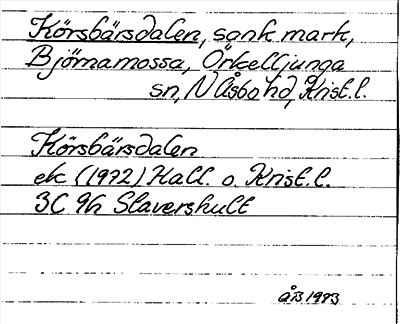 Körsbärsdalen, sank mark,
Björnamossa, Örkelljunga
sn, N Åsbo hd, Krist.l.
Körsbärsdalen
ek (1972) Hall. o. Krist.l.
3C 9h Slavershult
åB 1983